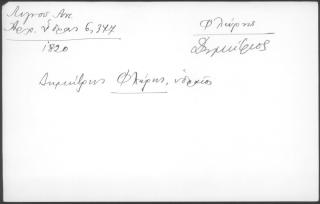 Λιγνού Αν.
Αρχ. Ύδρας 6, 377
1820
Φλώρης
Δημήτριος
Δημήτρης Φλώρης, υδραίος